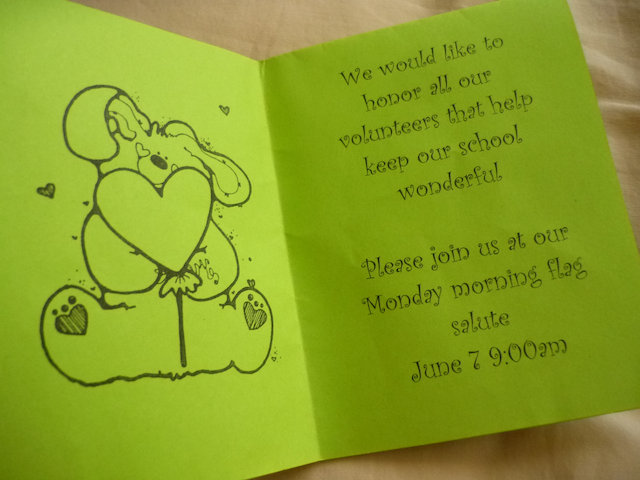 We would like to
honor all our
volunteers that help
keep our school
wonderful
Please join us at our
Monday morning flag
salute
June 7 9:00am